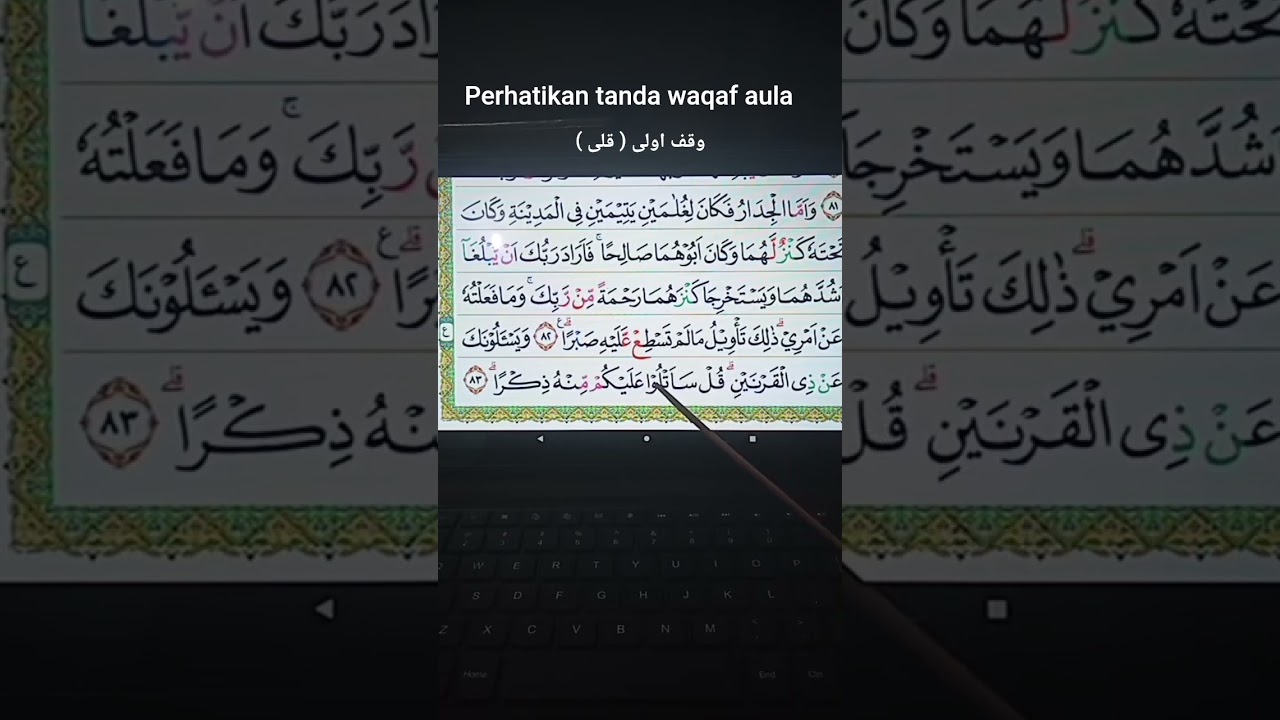 Perhatikan tanda waqaf aula
وقف اولى ( قلى )
٨١ وَاَمَّا الْجِدَارُ فَكَانَ لِغُلٰمَيْنِ يَتِيْمَيْنِ فِى الْمَدِيْنَةِ وَكَانَ
تَحْتَهٗ كَنْزٌ لَّهُمَا وَكَانَ اَبُوْهُمَا صَالِحًا ۚ فَاَرَادَ رَبُّكَ اَنْ يَّبْلُغَآ
اَشُدَّهُمَا وَيَسْتَخْرِجَا كَنْزَهُمَا رَحْمَةً مِّنْ رَّبِّكَ ۚ وَمَا فَعَلْتُهٗ
عَنْ اَمْرِيْ ۗ ذٰلِكَ تَأْوِيْلُ مَا لَمْ تَسْطِعْ عَّلَيْهِ صَبْرًا ۗ ع ٨٢ وَيَسْـَٔلُوْنَكَ
عَنْ ذِى الْقَرْنَيْنِ ۗ قُلْ سَاَتْلُوْا عَلَيْكُمْ مِّنْهُ ذِكْرًا ۗ ٨٣
ع
Q W E R T Y U I O P
S D F G H J K L
Z X C V B N M
Home End Ctn